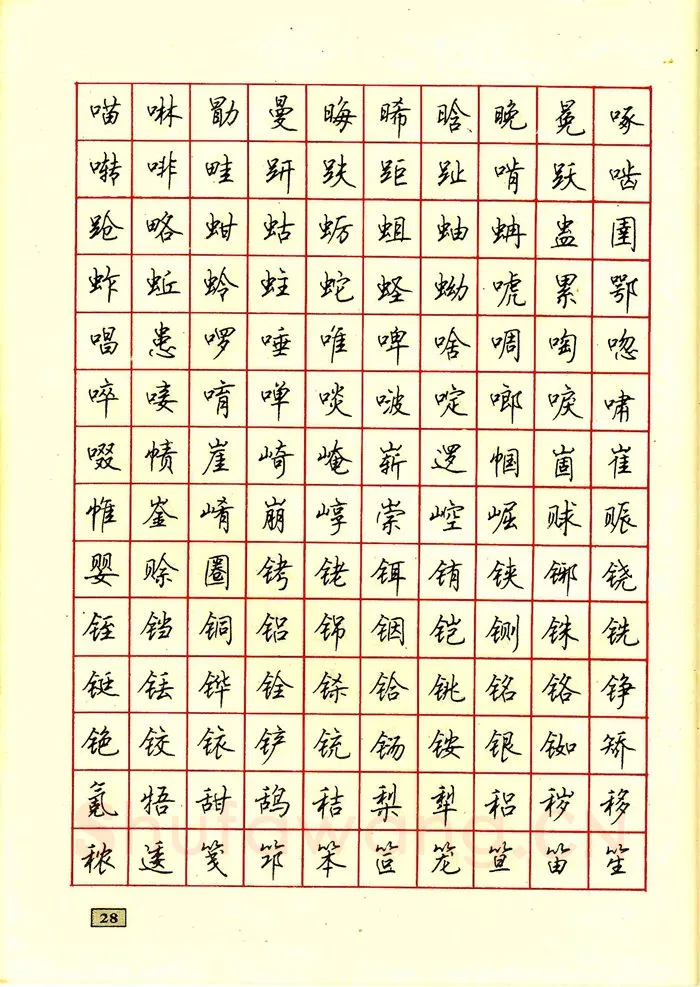 喵啉勖曼晦晞晗晚冕啄
啭啡畦趼趺距趾啃跃啮
跄略蚶蛄蛎蛆蚰蚺蛊圉
蚱蚯蛉蛀蛇蛏蚴唬累鄂
唱患啰唾唯啤啥啁啕唿
啐唼唷啴啖啵啶啷唳啸
啜帻崖崎崦崭逻帼崮崔
帷崟崤崩崞崇崆崛赇赈
婴赊圈铐铑铒铕铗铘铙
铚铛铜铝铞铟铠铡铢铣
铤铥铧铨铩铪铫铭铬铮
铯铰铱铲铳铴铵银铷矫
氪牾甜鸹秸梨犁稆秽移
秾逶笺筇笨笸笼笪笛笙
28
Shufawang.cn